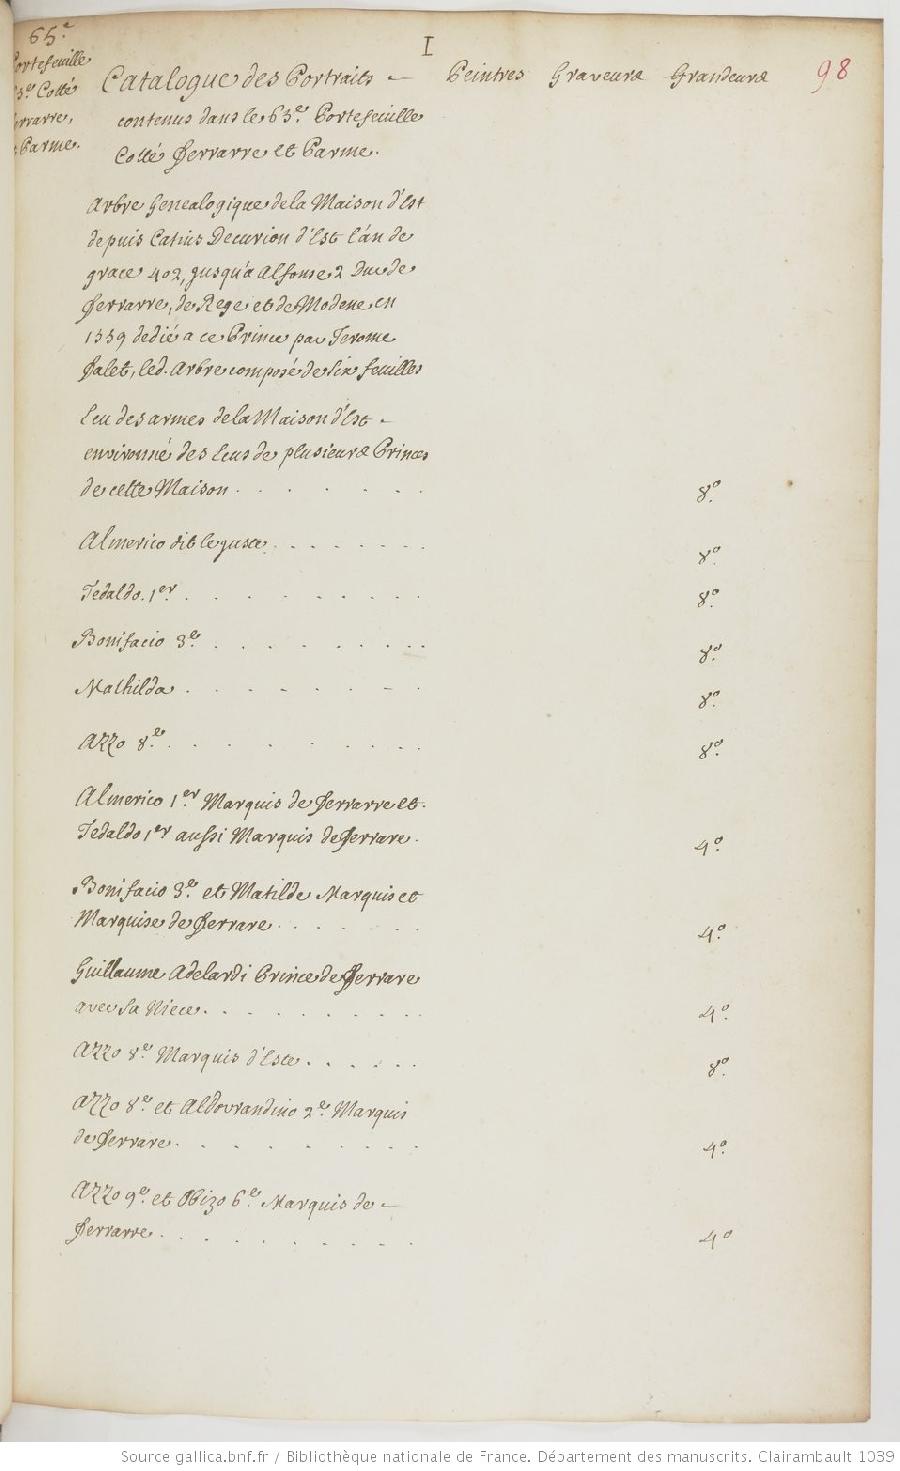 65.e
I
98
Portefeuille
63.e Cotté
Ferrarre,
et Parme.
Catalogue des Portraits Peintres Graveurs Grandeurs
contenus dans le 63.e Portefeuille
Cotté Ferrarre et Parme.
Arbre Genealogique de la Maison d'Est
depuis Catius Decurion d'Est l'an de
grace 402, jusqu'a Alfonse 2 Duc de
Ferrarre, de Rege et de Modene en
1559 dedié a ce Prince par Jerome
Falet, led. Arbre composé de six feuilles
Ecu des armes de la Maison d'Est
environné des Ecus de plusieurs Princes
de cette Maison . . . . . . . 8.o
Almerico dit le juste . . . . . . . 8.o
Tedaldo. 1.er . . . . . . . . 8.o
Bonifacio 3.e . . . . . . . . 8.o
Mathilda . . . . . . . 8.o
Azzo 8.e . . . . . . . . 8.o
Almerico 1.er Marquis de Ferrarre et
Tedaldo 1.er aussi Marquis de Ferrare. 4.o
Bonifacio 3.e et Matilde Marquis et
Marquise de Ferrare . . . . . 4.o
Guillaume Adelardi Prince de Ferrare
avec sa Niece . . . . . . . . 4.o
Azzo 8.e Marquis d'Este . . . . . 8.o
Azzo 8.e et Aldovrandino 2.e Marquis
de Ferrare . . . . . . . . 4.o
Azzo 9.e et Obizo 6.e Marquis de
Ferrarre . . . . . . . . 4.o
Source gallica.bnf.fr / Bibliothèque nationale de France. Département des manuscrits. Clairambault 1039